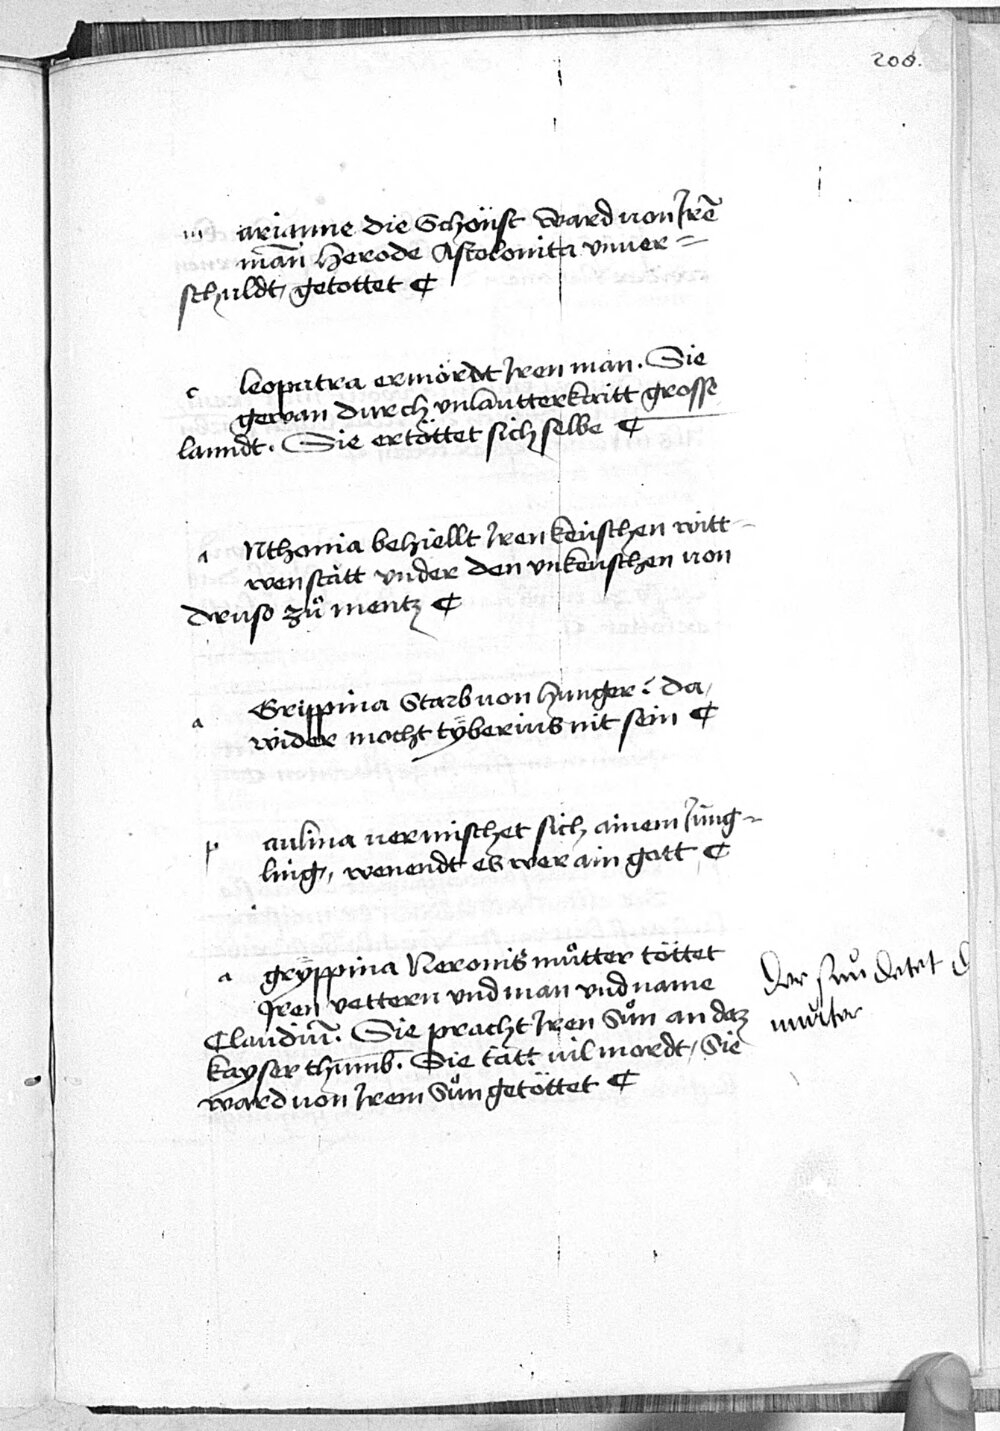 200.
m arianne die Schönst ward von Irē
mañ Herode Ascolonita vnuer=
schuldt, getottet ¶
c leopatra ermördt Iren man. Sie
gewan durch vnlautterkaitt grosse
lanndt. Sie ertöttet sich selbe ¶
a Nthonia behiellt Iren keüschen witt-
wen stätt vnder den vnkeuschen von
druso zů mentz ¶
a Grippina Starb von hunger: da,
wider mocht tÿberius nit sein ¶
p aulina vermischet sich ainem Jüng-
ling, wenendt es wer ain gott ¶
a grÿppina Neronis můtter töttet
Iren vettern vnd man vnd name
Claudiū. Sie pracht Iren Sůn an daz
kayserthumb. Sie tätt vil mordt, Sie
ward von Irem Sůn getöttet ¶
Der sůn detet d
můter